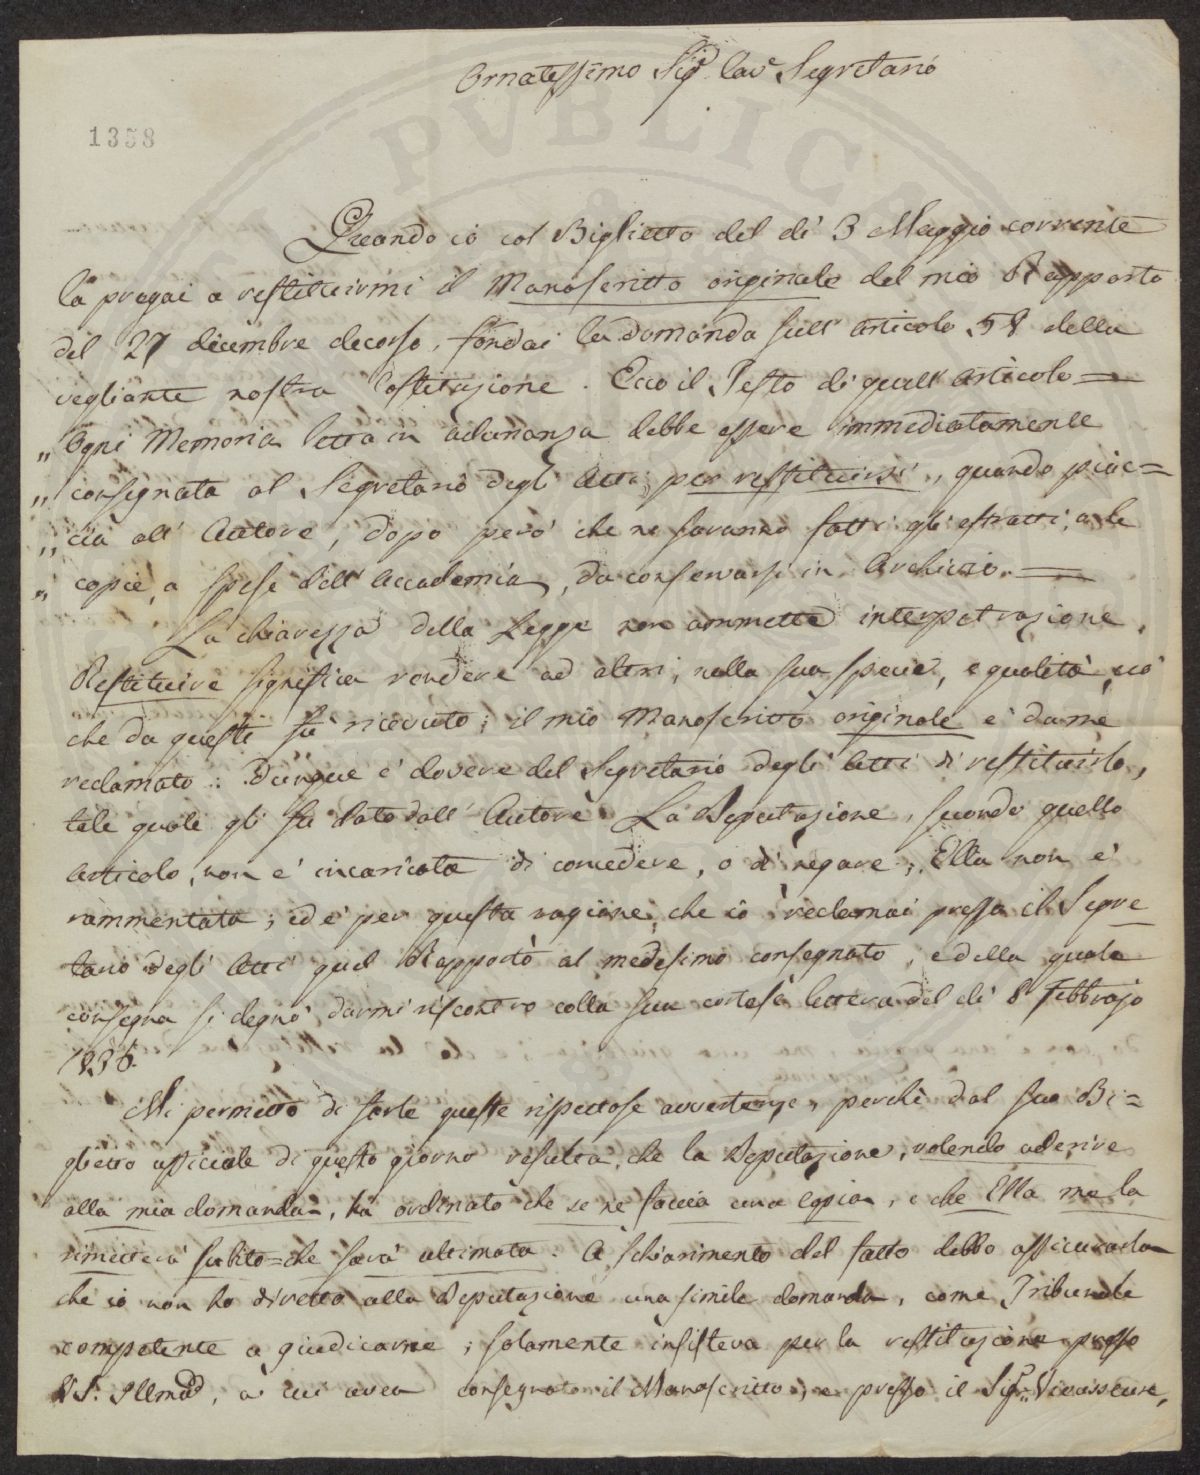 Ornatissimo Sigr. Cavr. Segretario
1358
Quando io col Biglietto del dì 3 Maggio corrente
la pregai a restituirmi il Manoscritto originale del mio Rapporto
del 27 dicembre decorso, fondai la domanda sull' articolo 58 della
vegliante nostra Costituzione. Ecco il Testo di quell' articolo =
„ Ogni Memoria letta in adunanza debbe essere immediatamente
„ consegnata al Segretario degli Atti, per restituirsi, quando piac=
„ cia all' Autore, dopo però che ne saranno fatti gli estratti, o le
„ copie, a spese dell' Accademia, da conservarsi in Archivio. =
La chiarezza della Legge non ammette interpetrazione.
Restituire significa rendere ad altri, nella sua specie, e qualità, ciò
che da questi fu ricevuto; il mio Manoscritto originale è da me
reclamato: Dunque è dovere del Segretario degli Atti di restituirlo,
tale quale gli fu dato dall' Autore. La Deputazione, secondo quello
articolo, non è incaricata di concedere, o di negare; Ella non è
rammentata; ed è per questa ragione, che io reclamai presso il Segre
tario degli Atti quel Rapporto al medesimo consegnato, e della quale
consegna si degnò darmi riscontro colla sua cortese lettera del dì 8 Febbrajo
1836.
Mi permetto di farle queste rispettose avvertenze, perchè dal suo Bi=
glietto officiale di questo giorno resulta, che la Deputazione, volendo aderire
alla mia domanda, ha ordinato che se ne faccia una copia, e che Ella me la
rimetterà subito=che sarà ultimata. A schiarimento del fatto debbo assicurarla
che io non ho diretta alla Deputazione una simile domanda, come Tribunale
competente a giudicarne; solamente insisteva per la restituzione presso
V. S. Illma, a cui avea consegnato il Manoscritto, e presso il Sigr.